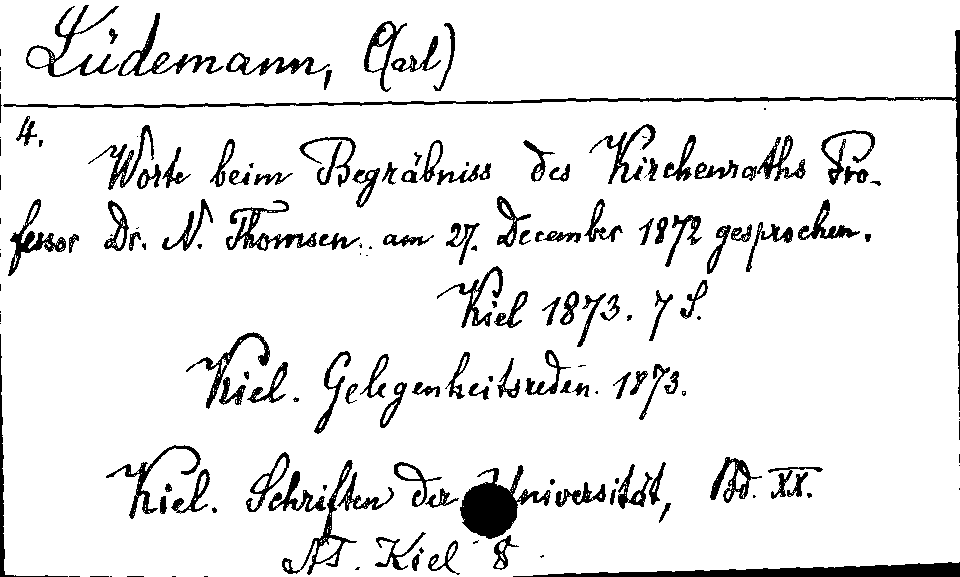 Lüdemann, C(arl)
4.
Worte beim Begräbniss des Kirchenraths Pro-
fessor Dr. N. Thomsen am 27. December 1872 gesprochen.
Kiel 1873. 7 S.
Kiel. Gelegenheitsreden. 1873.
Kiel. Schriften der Universität, Bd. XX.
AT. Kiel 8